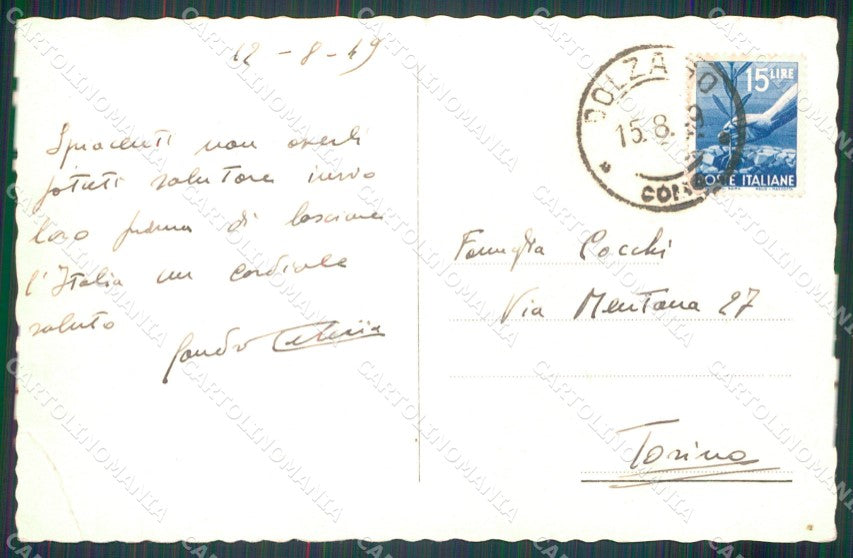 12 - 8 - 49
Spiacenti non averli
potuti salutare invio
loro prima di lasciare
l'Italia un cordiale
saluto
Sandro
DOLZAGO
15.8.49
COMO
15 LIRE
POSTE ITALIANE
Famiglia Cocchi
Via Mentana 27
Torino
CARTOLINOMANIA